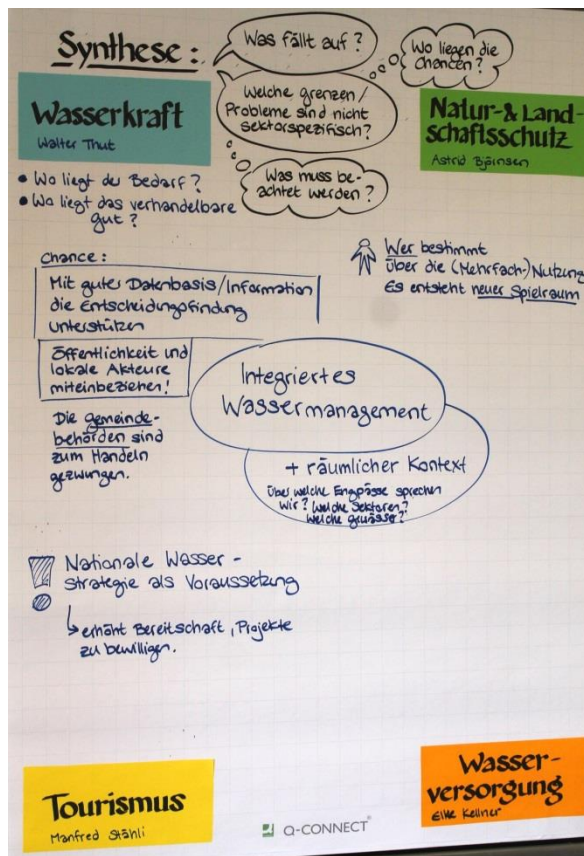 Synthese:
Was fällt auf?
Wo liegen die
Chancen?
Welche grenzen/
Probleme sind nicht
sektorspezifisch?
Was muss be-
achtet werden?
Wasserkraft
Walter Thut
Natur-& Land-
schaftsschutz
Astrid Björnsen
• Wo liegt der Bedarf?
• Wo liegt das verhandelbare
gut?
Wer bestimmt
über die (Mehrfach-)Nutzung
Es entsteht neuer Spielraum
Chance:
Mit guter Datenbasis/Information
die Entscheidungsfindung
unterstützen
Öffentlichkeit und
lokale Akteure
miteinbeziehen!
Die gemeinde-
behörden sind
zum Handeln
gezwungen.
Integriertes
Wassermanagement
+ räumlicher Kontext
Über welche Engpässe sprechen
wir? Welche Sektoren?
Welche gewässer?
! Nationale Wasser-
strategie als Voraussetzung
↳ erhöht Bereitschaft, Projekte
zu bewilligen.
Tourismus
Manfred Stähli
Q-CONNECT®
Wasser-
versorgung
Elke Kellner